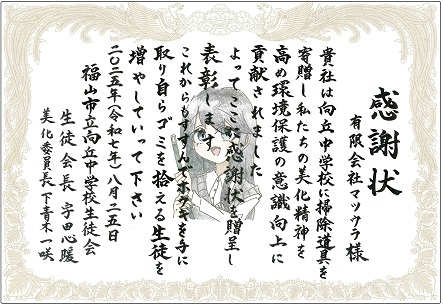 感謝状
有限会社マツウラ 様
貴社は向丘中学校に掃除道具を
寄贈し私たちの美化精神を
高め環境保護の意識向上に
貢献されました
よってここに感謝状を贈呈し
表彰します
これからもすすんでホウキを手に
取り自らゴミを拾える生徒を
増やしていって下さい
二〇二五年(令和七年)八月二五日
福山市立向丘中学校生徒会
生徒会長 宇田心暖
美化委員長 下青木一咲